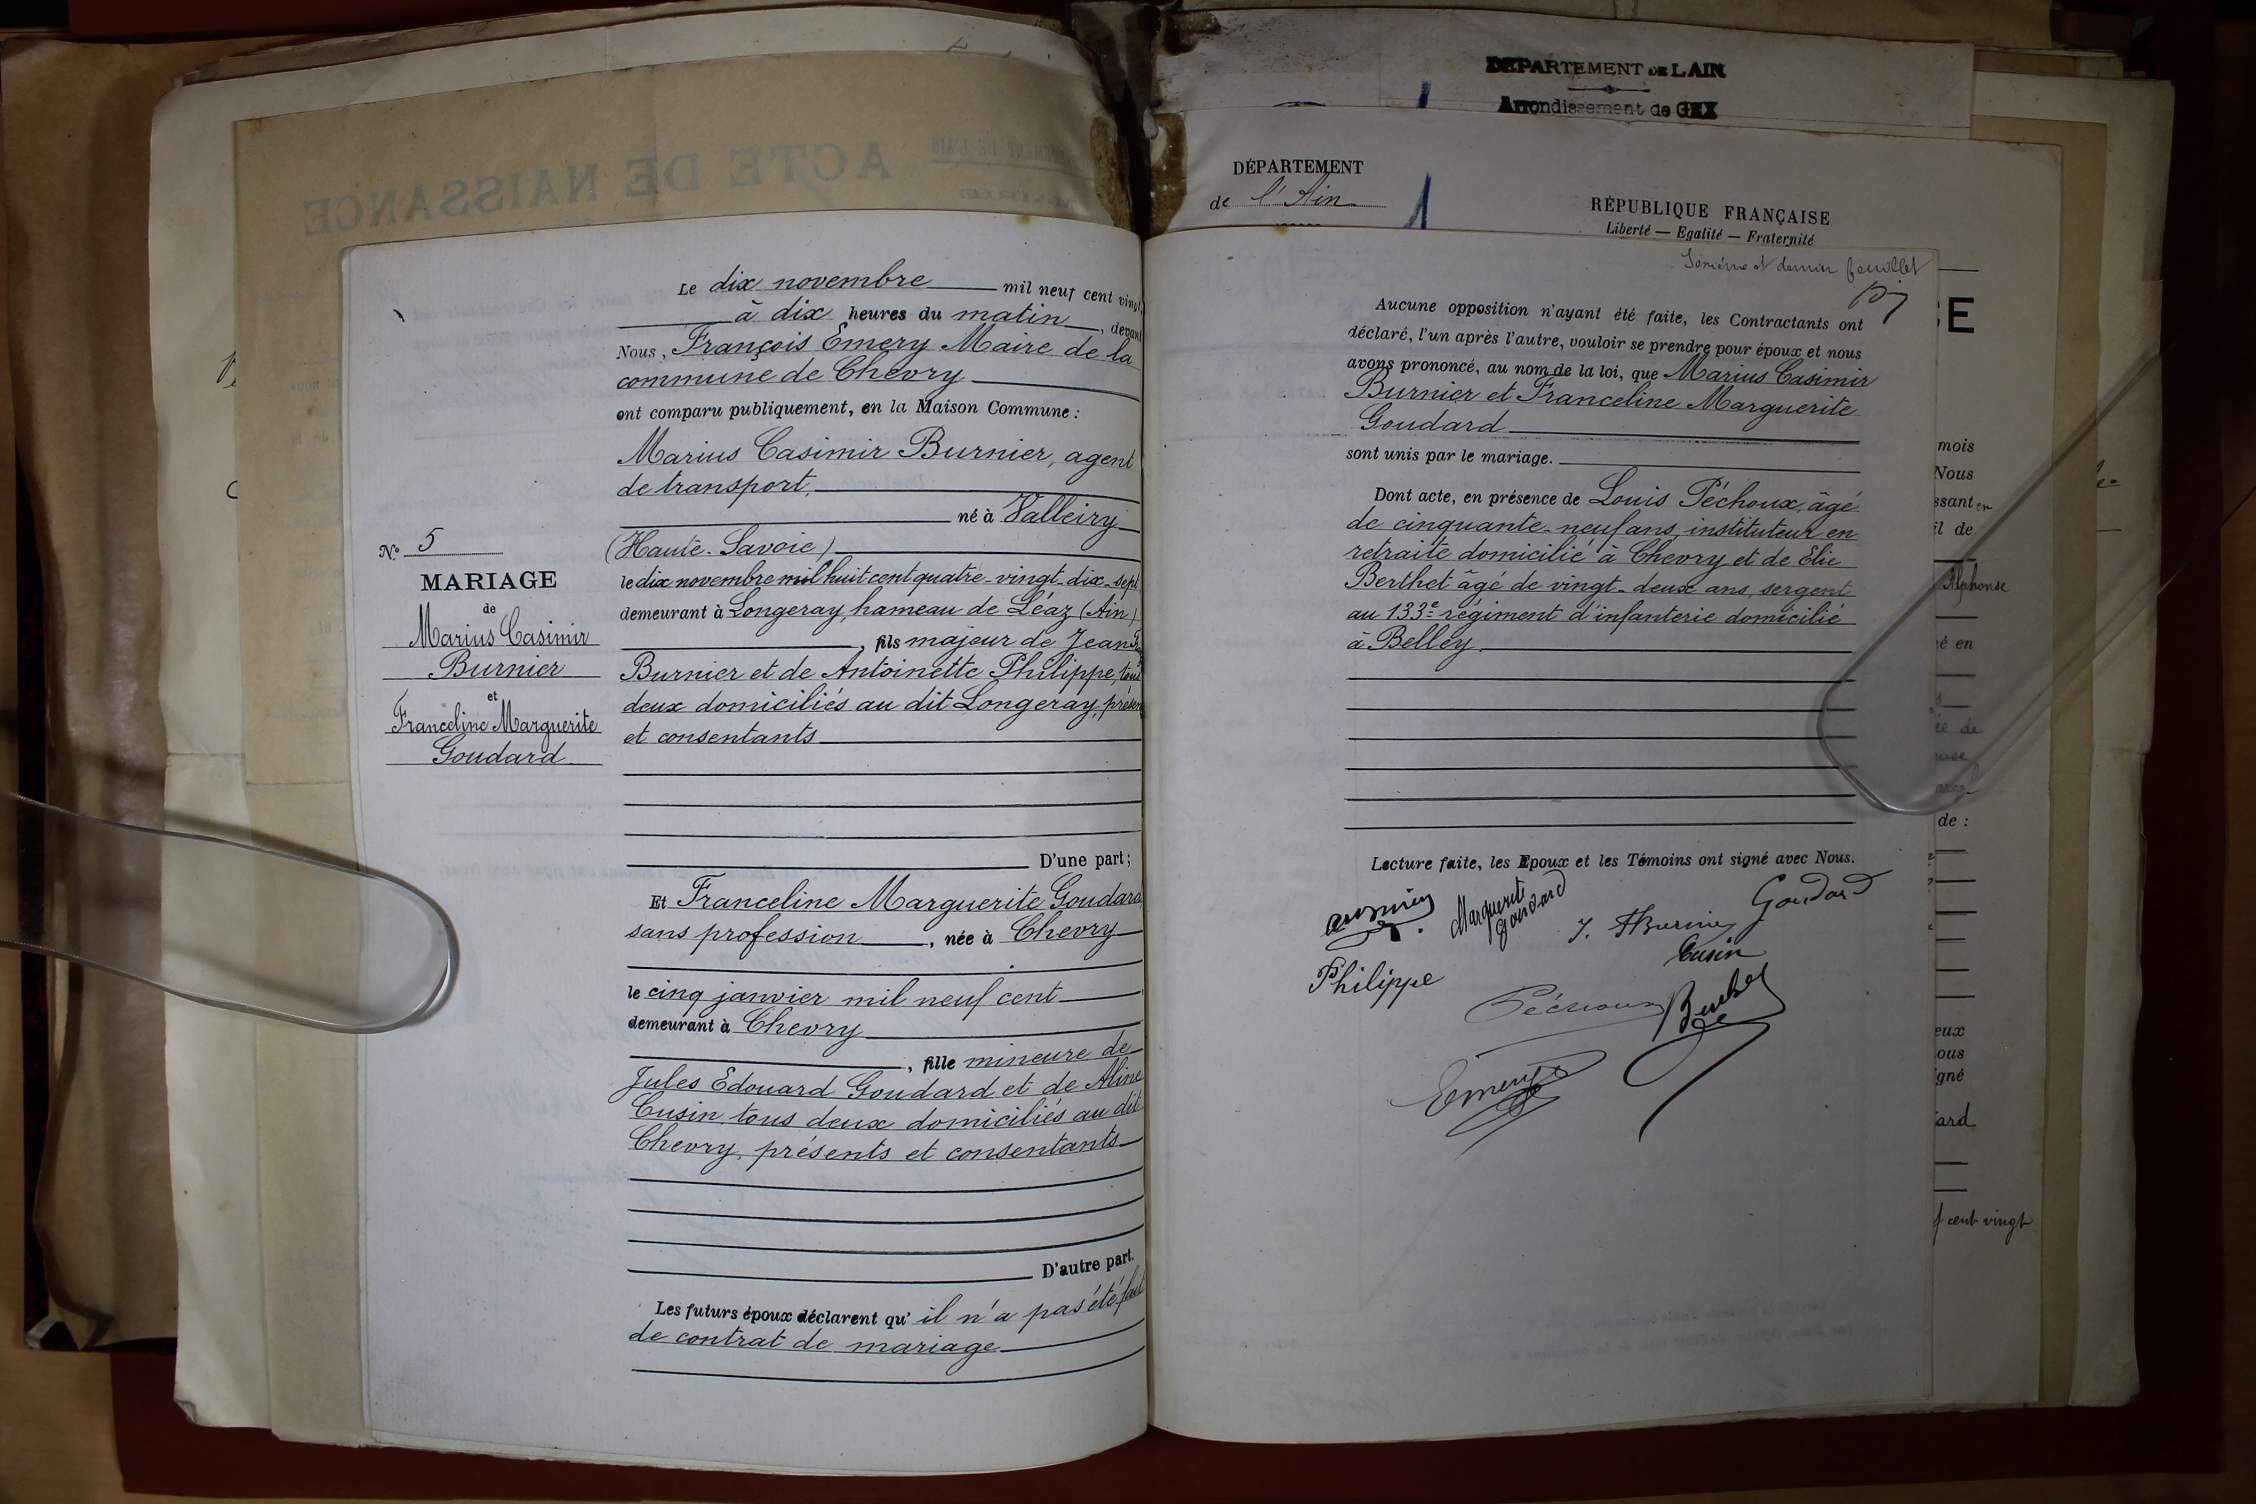 N° 5
MARIAGE
de
Marius Casimir
Burnier
et
Franceline Marguerite
Goudard
Le dix novembre mil neuf cent vingt
à dix heures du matin, devant
Nous, François Emery Maire de la
commune de Chevry
ont comparu publiquement, en la Maison Commune :
Marius Casimir Burnier, agent
de transport,
né à Valleiry
(Haute-Savoie)
le dix novembre mil huit cent quatre-vingt-dix-sept
demeurant à Longeray, hameau de Léaz (Ain)
, fils majeur de Jean
Burnier et de Antoinette Philippe, tous
deux domiciliés au dit Longeray, présen
et consentants
D'une part ;
Et Franceline Marguerite Goudard
sans profession, née à Chevry
le cinq janvier mil neuf cent
demeurant à Chevry
, fille mineure de
Jules Edouard Goudard et de Aline
Cusin, tous deux domiciliés au dit
Chevry, présents et consentants
D'autre part.
Les futurs époux déclarent qu'il n'a pas été fait
de contrat de mariage
ACTE DE NAISSANCE
DEPARTEMENT DE L'AIN
Arrondissement de GEX
DÉPARTEMENT
de l'Ain
1
RÉPUBLIQUE FRANÇAISE
Liberté — Egalité — Fraternité
et dernier feuillet
Aucune opposition n'ayant été faite, les Contractants ont
déclaré, l'un après l'autre, vouloir se prendre pour époux et nous
avons prononcé, au nom de la loi, que Marius Casimir
Burnier et Franceline Marguerite
Goudard
sont unis par le mariage.
Dont acte, en présence de Louis Péchoux, âgé
de cinquante-neuf ans, instituteur en
retraite domicilié à Chevry et de Elie
Berthet âgé de vingt-deux ans, sergent
au 133e régiment d'infanterie domicilié
à Belley
Lecture faite, les Epoux et les Témoins ont signé avec Nous.
Marguerite
Goudard
Goudard
Cusin
Philippe
Péchoux
Emery
CE
mois
Nous
ssant en
il de
Alphonse
é en
ée de
de :
eux
ous
igné
ard
f cent vingt